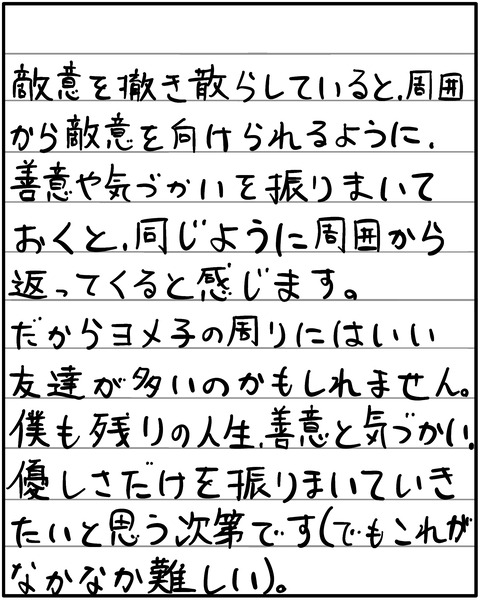 敵意を撒き散らしていると、周囲
から敵意を向けられるように、
善意や気づかいを振りまいて
おくと、同じように周囲から
返ってくると感じます。
だからヨメ子の周りにはいい
友達が多いのかもしれません。
僕も残りの人生、善意と気づかい、
優しさだけを振りまいていき
たいと思う次第です(でもこれが
なかなか難しい)。